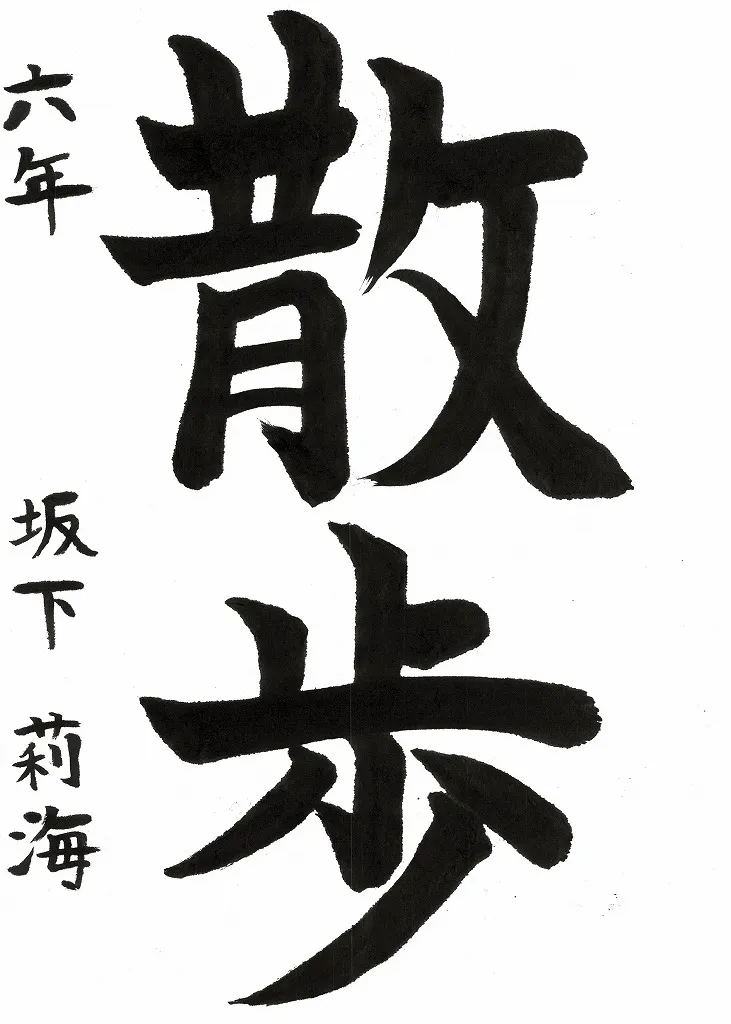 散歩
六年 坂下 莉海